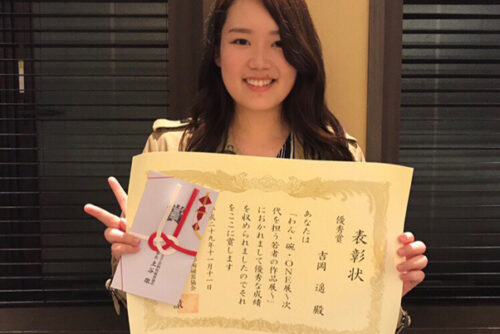 表彰状
優秀賞
吉岡 遥 殿
あなたは
「わん・碗・ONE展～次
代を担う若者の作品展～」
におかれまして優秀な成績
を収められましたのでそれ
をここに賞します
平成二十九年十一月十一日
賞